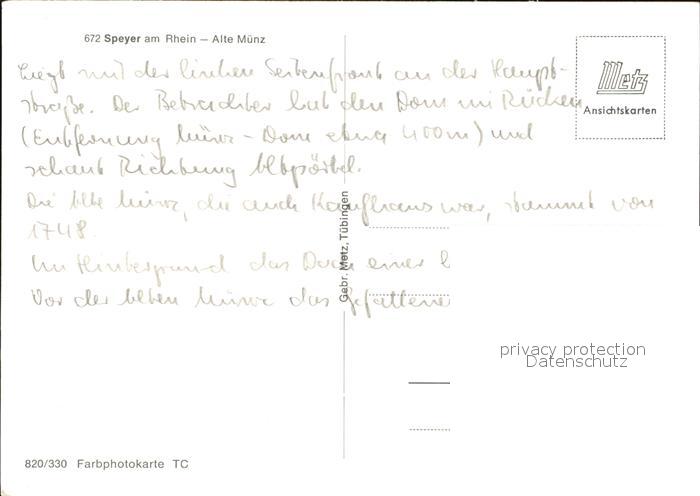 672 Speyer am Rhein – Alte Münz
Liegt mit der linken Seitenfront an der Haupt-
straße. Der Betrachter hat den Dom im Rücken
(Entfernung Münz - Dom etwa 400m) und
schaut Richtung Altpörtel.
Die Alte Münze, die auch Kaufhaus war, stammt von
1748.
Im Hintergrund das Dach einer
Vor der Alten Münze das Gefallene
Metz
Ansichtskarten
Gebr. Metz, Tübingen
privacy protection
Datenschutz
820/330 Farbphotokarte TC